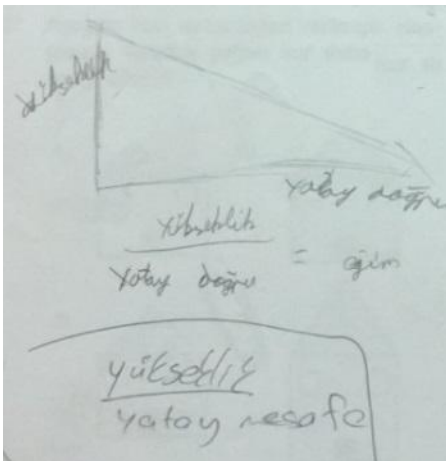 yükseklik
yatay doğru
yükseklik
yatay doğru = eğim
yükseklik
yatay mesafe